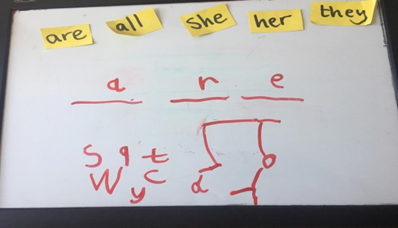 are all she her they
a r e
S q t
W y c d